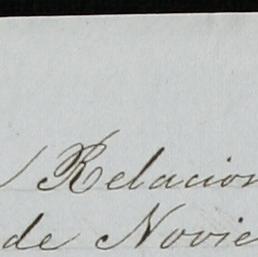 Relacion
de Novie